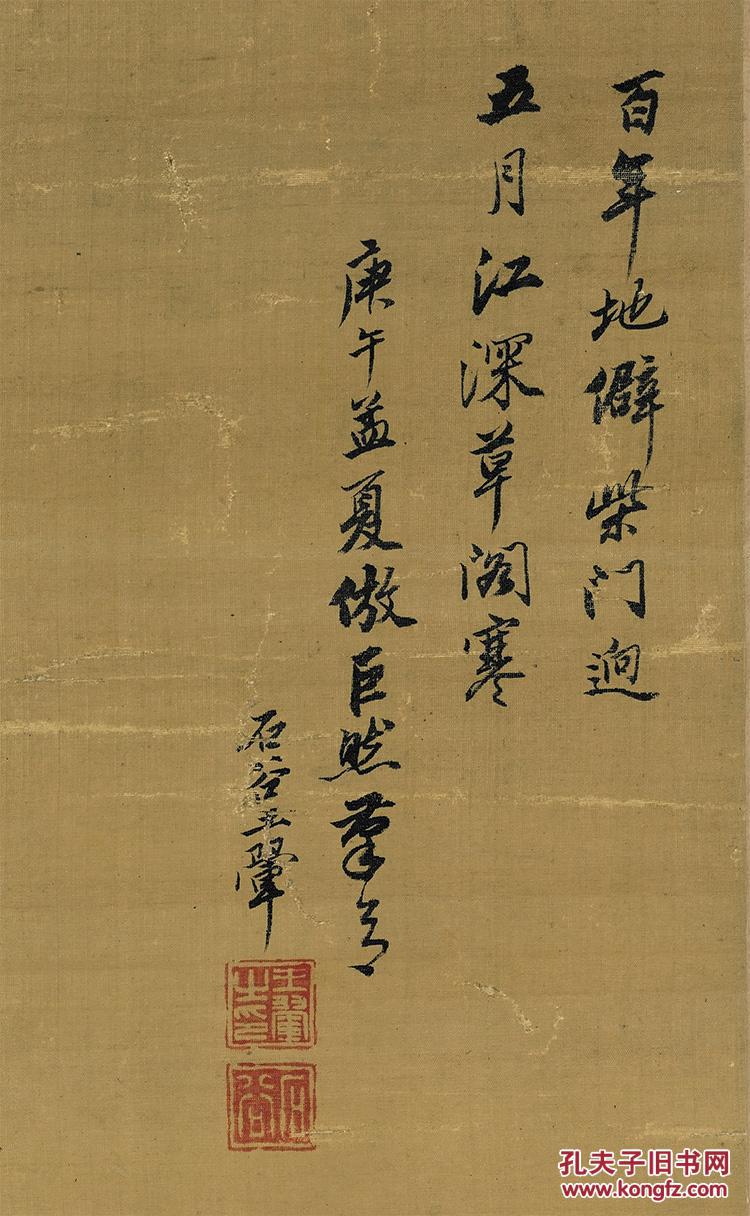 百年地僻柴门迥
五月江深草阁寒
庚午孟夏倣巨然筆意
石谷王翬
王翬之印
石谷
孔夫子旧书网
www.kongfz.com